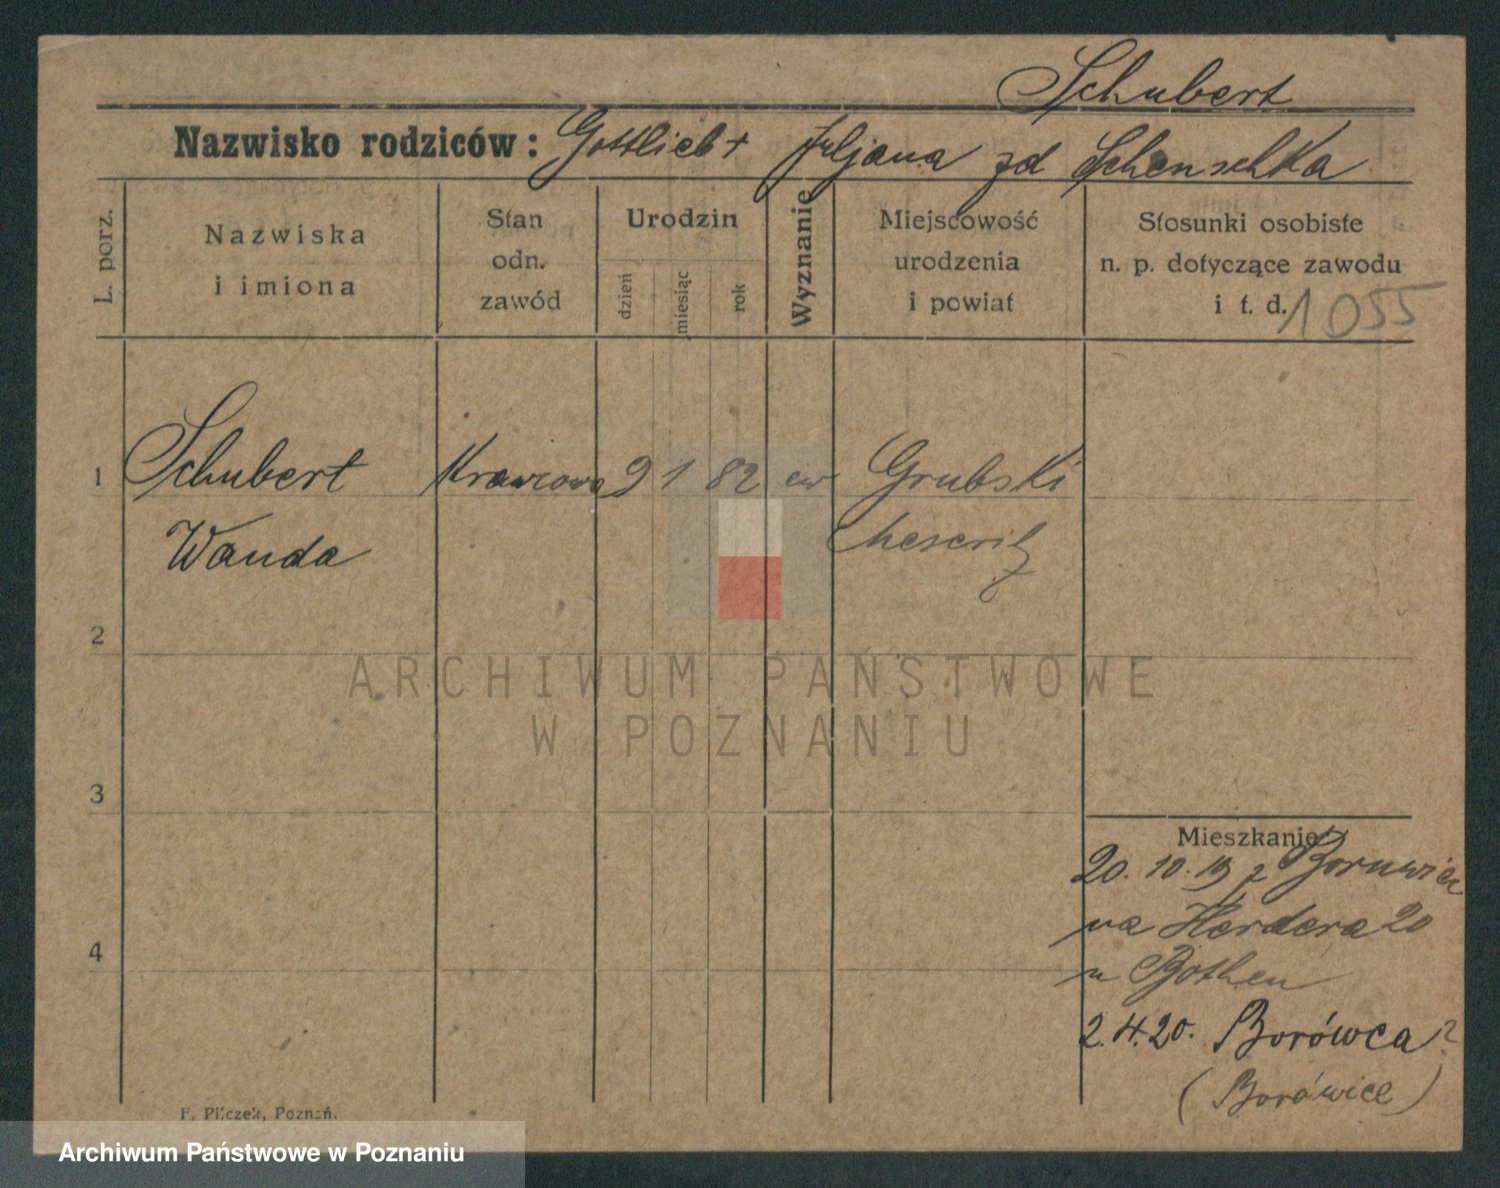 Schubert
Nazwisko rodziców: Gottlieb + Juljana zd Schenschka
L. porz.
Nazwiska
i imiona
Stan
odn.
zawód
Urodzin
dzień
miesiąc
rok
Wyznanie
Miejscowość
urodzenia
i powiat
Stosunki osobiste
n. p. dotyczące zawodu
i t. d. 1055
1 Schubert Krawcowa 9 1 82 ew Grubski
Wanda Meseritz
2
3
4
Mieszkanie
20. 10. 19 z
na Herdera 20
u Bothen
2.4.20. Borówca ?
(Borówice)
F. Pilczek, Poznań.
ARCHIWUM PAŃSTWOWE
W POZNANIU
Archiwum Państwowe w Poznaniu